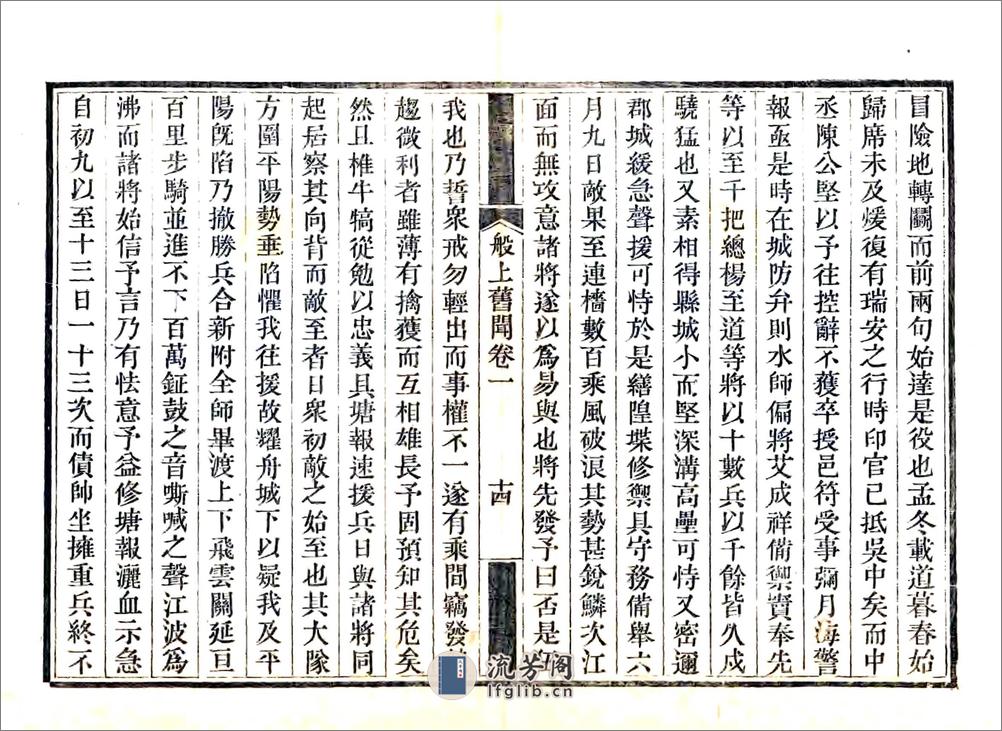 冒險地轉鬬而前兩句始達是役也孟冬載道暮春始
歸席未及煖復有瑞安之行時印官已抵吳中矣而中
丞陳公堅以予往控辭不獲卒授邑符受事彌月海警
報亟是時在城防弁則水師偏將艾成祥備禦賁奉先
等以至千把總楊至道等將以十數兵以千餘皆久戍
驍猛也又素相得縣城小而堅深溝高壘可恃又密邇
郡城緩急聲援可恃於是繕隍堞修禦具守務備舉六
月九日敵果至連檣數百乘風破浪其勢甚銳鱗次江
面而無攻意諸將遂以爲易與也將先發予曰否是
般上舊聞卷一
十四
我也乃誓衆戒勿輕出而事權不一遂有乘間竊發
趨微利者雖薄有擒獲而互相雄長予固預知其危矣
然且椎牛犒從勉以忠義具塘報速援兵日與諸將同
起居察其向背而敵至者日衆初敵之始至也其大隊
方圍平陽勢垂陷懼我往援故耀舟城下以疑我及平
陽旣陷乃撤勝兵合新附全師畢渡上下飛雲關延亘
百里步騎並進不下百萬鉦鼓之音嘶喊之聲江波爲
沸而諸將始信予言乃有怯意予益修塘報灑血示急
自初九以至十三日一十三次而債帥坐擁重兵終不
流芳閣
lfglib.cn